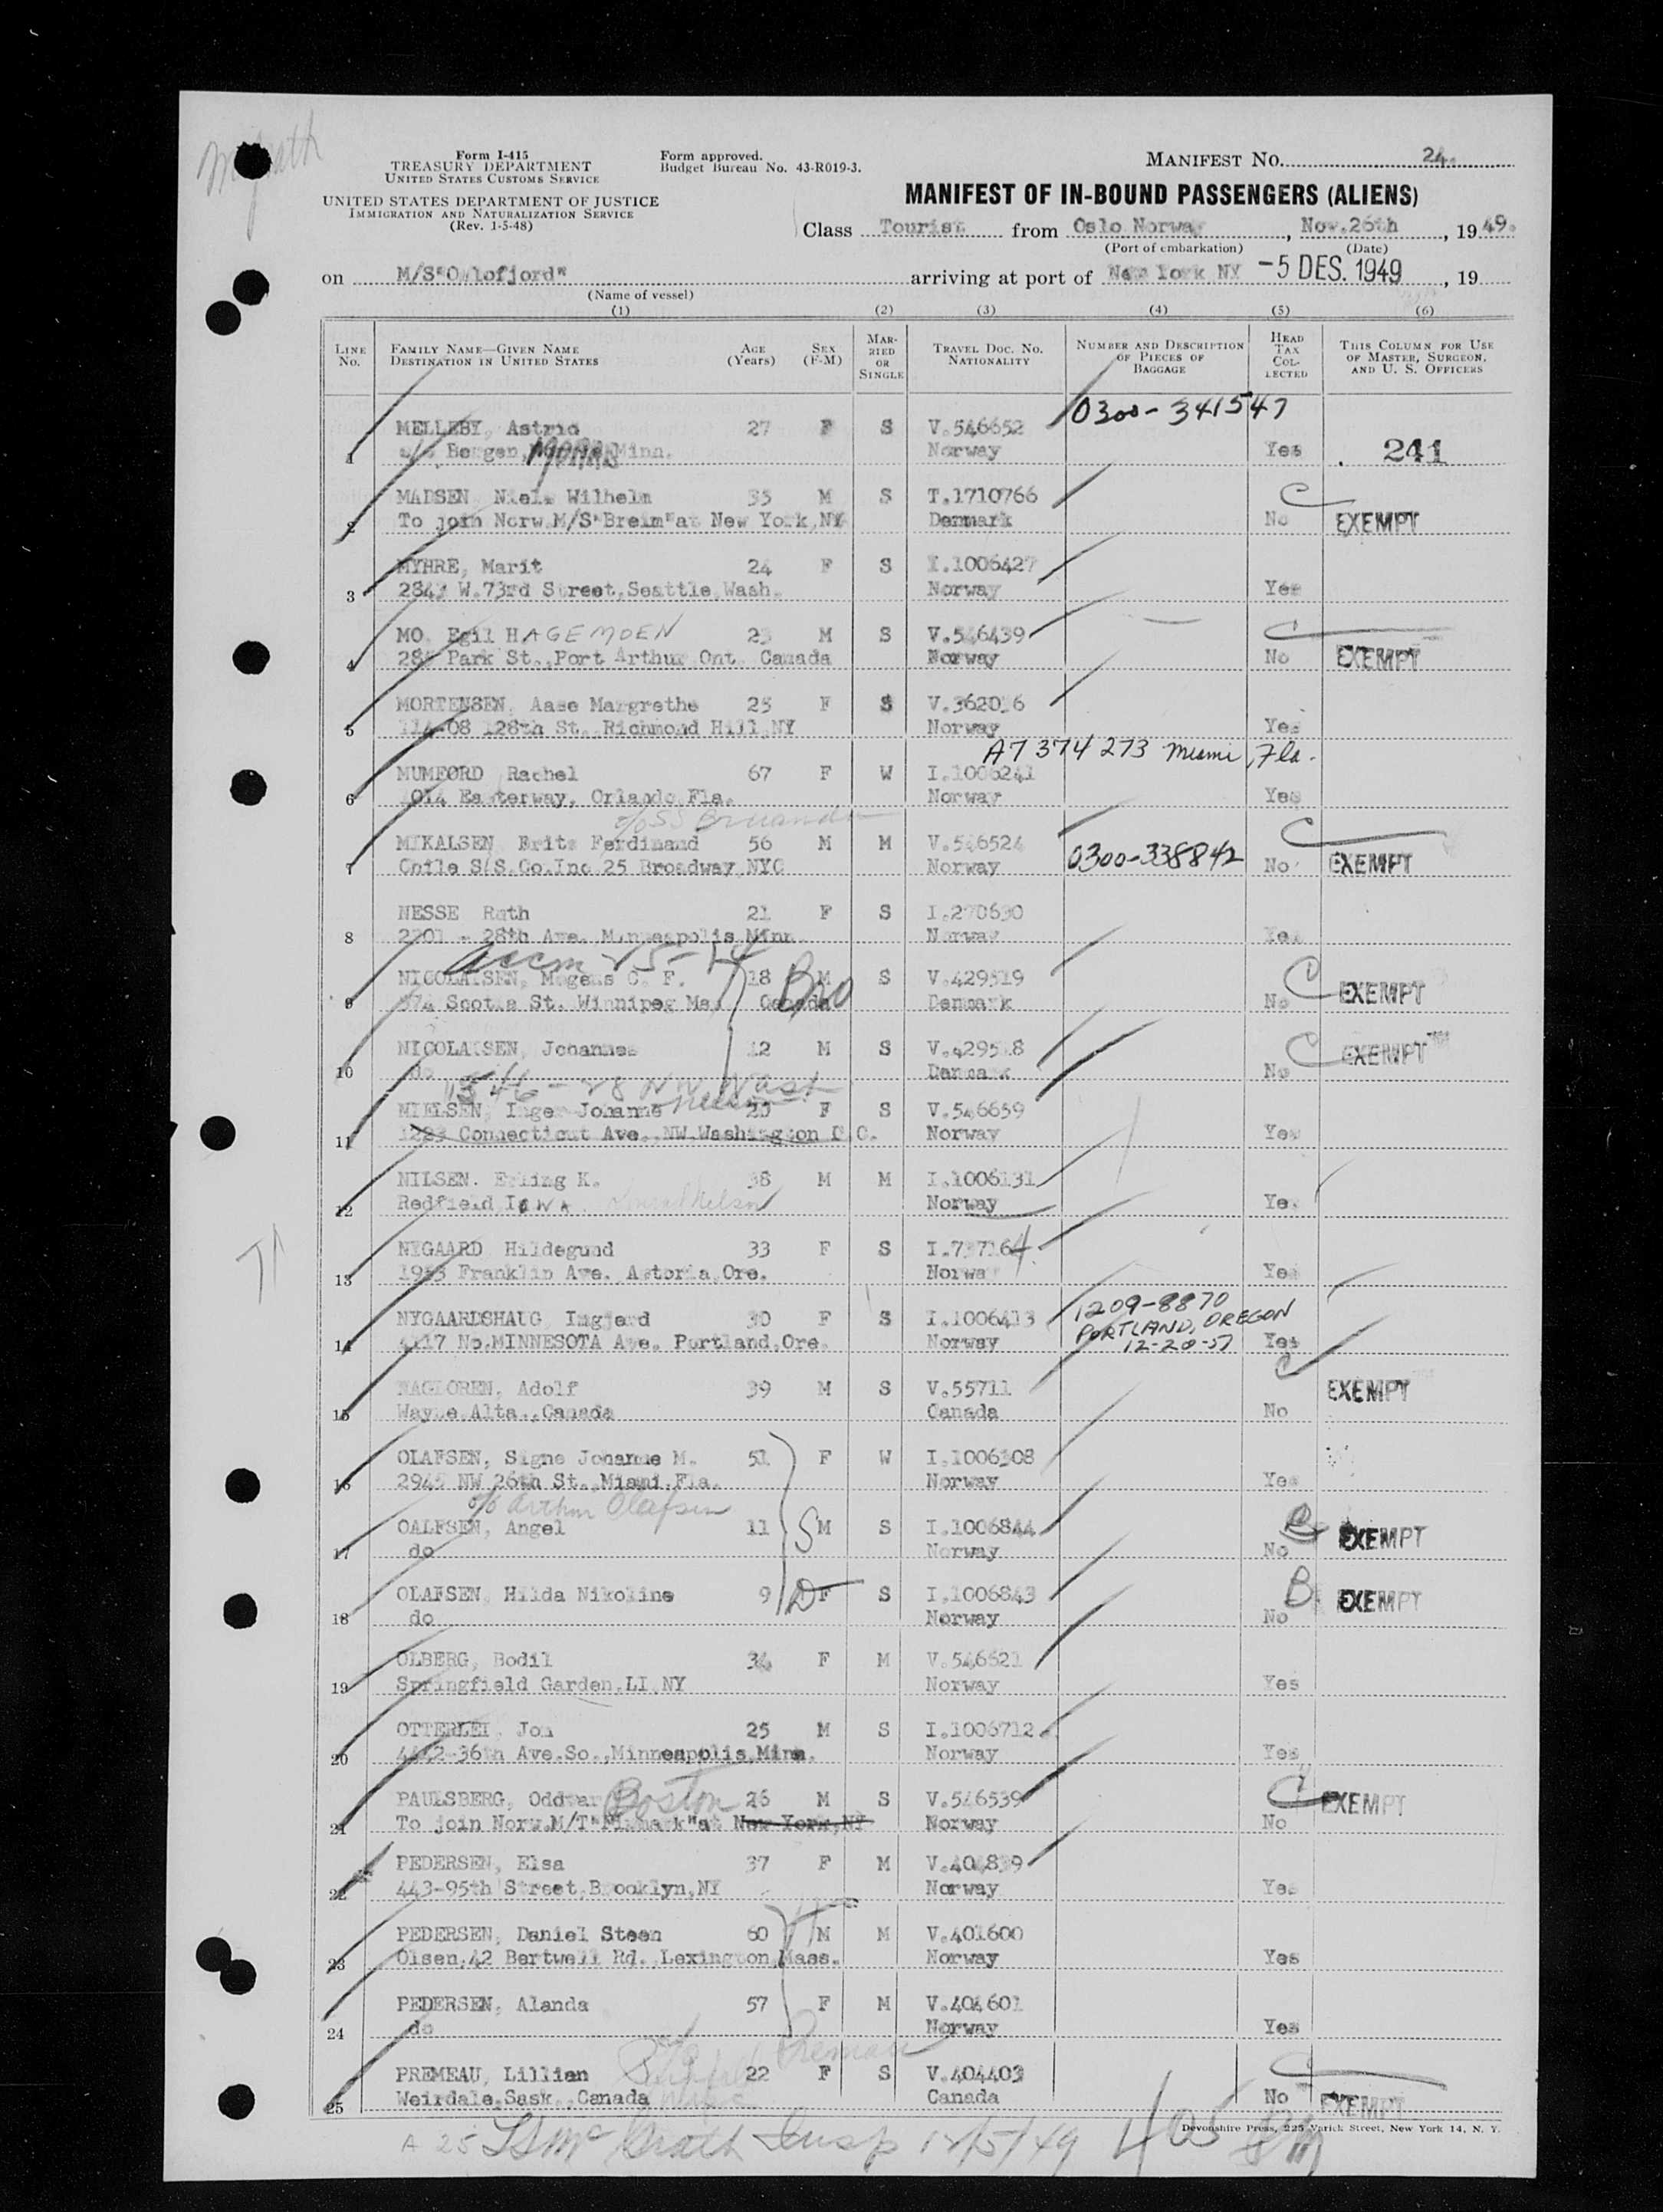 Form I-415
TREASURY DEPARTMENT
UNITED STATES CUSTOMS SERVICE
UNITED STATES DEPARTMENT OF JUSTICE
IMMIGRATION AND NATURALIZATION SERVICE
(Rev. 1-5-48)
Form approved.
Budget Bureau No. 43-R019-3.
MANIFEST NO. 24.
MANIFEST OF IN-BOUND PASSENGERS (ALIENS)
Class Tourist from Oslo Norway, Nov.26th, 1949.
(Port of embarkation) (Date)
on M/S"Oslofjord" arriving at port of New York NY -5 DES. 1949, 19
(Name of vessel)
(1) (2) (3) (4) (5) (6)
LINE No. FAMILY NAME—GIVEN NAME DESTINATION IN UNITED STATES AGE (Years) SEX (F-M) MARRIED OR SINGLE TRAVEL DOC. NO. NATIONALITY NUMBER AND DESCRIPTION OF PIECES OF BAGGAGE HEAD TAX COLLECTED THIS COLUMN FOR USE OF MASTER, SURGEON, AND U. S. OFFICERS
0300-341547
MELLEBY, Astrid 27 F S V.546652
1 Bergen, Minn. Norway Yes 241
MADSEN Niels Wilhelm 35 M S T.1710766 C
2 To join Norw.M/S"Breim"at New York,NY Denmark No EXEMPT
MYHRE, Marit 24 F S I.1006427
3 W.73rd Street,Seattle,Wash. Norway Yes
MO Egil HAGEMOEN M S V.546439 C
4 Park St.,Port Arthur Ont. Canada Norway No EXEMPT
MORTENSEN, Aase Margrethe 25 F S
5 128th St. Richmond Hill NY Norway Yes
A7 374 273 Miami, Fla.
MUMFORD Rachel 67 F W I.1006241
6 Easterway, Orlando Fla. Norway Yes
MIKALSEN Frits Ferdinand 56 M M V.546524 C
7 S/S.Co.Inc 25 Broadway NYC Norway 0300-338842 No EXEMPT
NESSE Ruth 21 F S I.270630
8 28th Ave. Minneapolis Minn. Norway Yes
NICOLAISEN, Mogens C. F. 18 M Bro S V.429519 C
9 St. Winnipeg Ma. Canada Denmark No EXEMPT
NICOLAISEN, Johannes 12 M S V.429518 C EXEMPT
10 do Denmark No
1546 - 28 NW Wash
NIELSEN, Inger Johanne F S V.546659
11 Connecticut Ave. NW.Washington D.C. Norway Yes
NILSEN. Erling K. 38 M M I.1006131
12 Redfield IOWA Norway Yes
NYGAARD Hildegund 33 F S
13 Franklin Ave. Astoria Ore. Norway Yes
NYGAARDSHAUG Ingjerd 30 F S I.1006413 1209-8870
PORTLAND, OREGON
14 4117 No.MINNESOTA Ave. Portland,Ore. Norway 12-20-57 Yes
Adolf 39 M S V.55711 C EXEMPT
15 Wayne Alta.,Canada Canada No
OLAFSEN, Signe Johanne M. 51 F W I.1006308
16 2945 NW 26th St.,Miami,Fla. Norway Yes
c/o Arthur Olafsen
OALFSEN, Angel 11 S M S I.1006844 EXEMPT
17 do Norway No
OLAFSEN, Hilda Nikoline 9 D F S I.1006843 B EXEMPT
18 do Norway No
OLBERG, Bodil 34 F M V.546621
19 Springfield Garden,LI NY Norway Yes
OTTERLEI, Jon 25 M S I.1006712
20 36th Ave.So.,Minneapolis,Minn. Norway Yes
PAULSBERG, Oddvar Boston 26 M S V.546539 C EXEMPT
21 To join Norw.M/T at New York,NY Norway No
PEDERSEN, Elsa 37 F M
22 443-95th Street,Brooklyn,NY Norway Yes
PEDERSEN, Daniel Steen 60 M M V.401600
23 Olsen,42 Bertwell Rd. Lexington,Mass. Norway Yes
PEDERSEN, Alanda 57 F M V.404601
24 do Norway Yes
PREMEAU, Lillian 22 F S V.404403 C
25 Weirdale,Sask.,Canada Canada No EXEMPT
Devonshire Press, 225 Varick Street, New York 14, N. Y.
A 25 McGrath Insp 12/5/49 405 pm